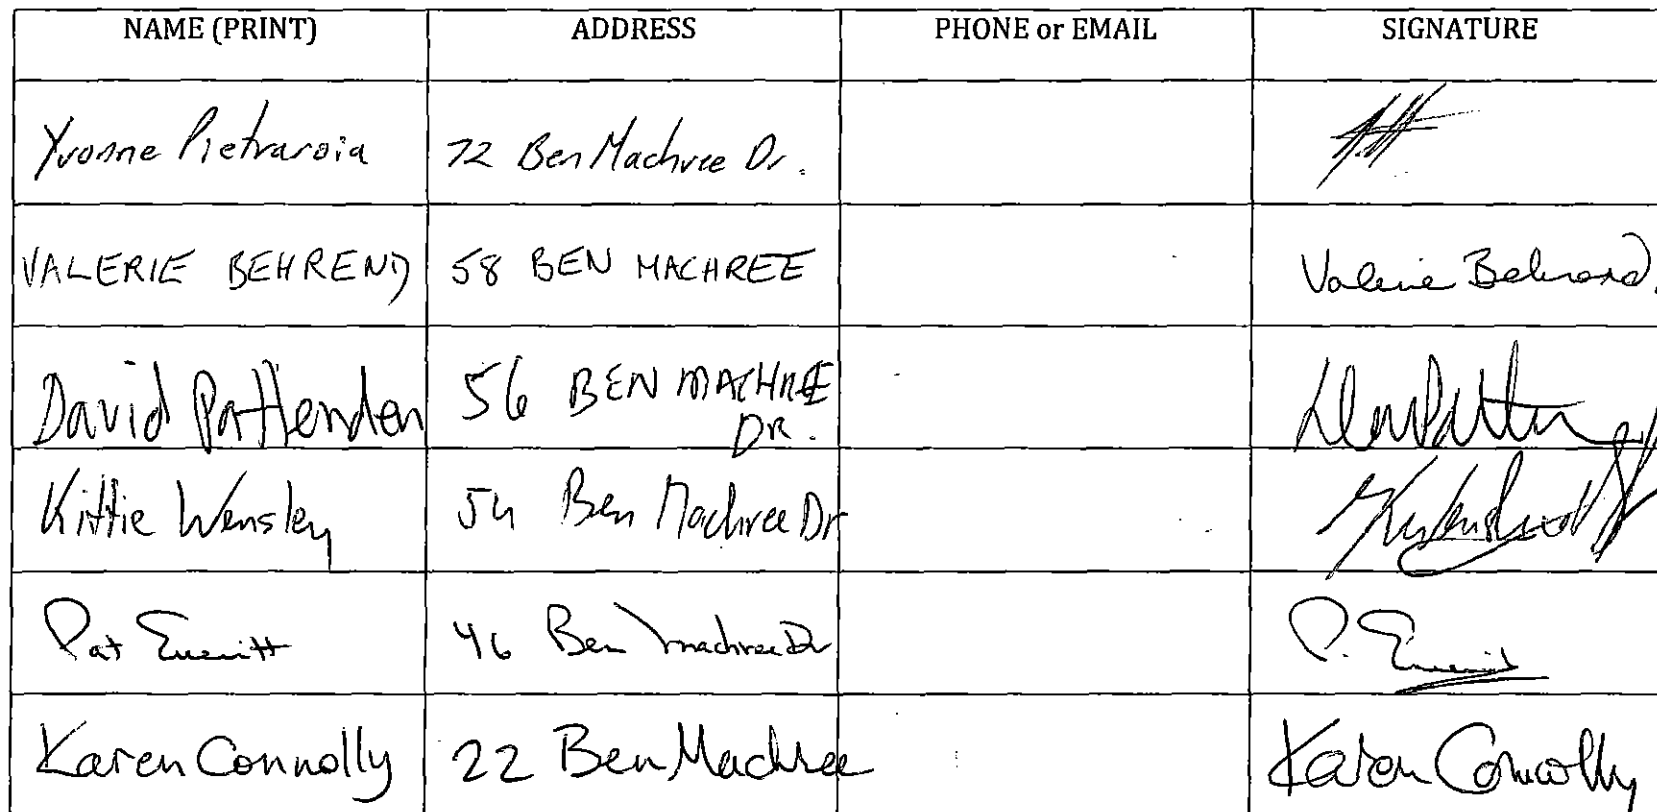 NAME (PRINT) ADDRESS PHONE or EMAIL SIGNATURE
Yvonne Pietraroia 72 Ben Machree Dr.
VALERIE BEHREND 58 BEN MACHREE Valerie Behrend.
David Pattenden 56 BEN MACHREE
DR.
Kittie Wensley 54 Ben Machree Dr
Pat Everitt 46 Ben Machree Dr P. Everitt
Karen Connolly 22 Ben Machree Karen Connolly